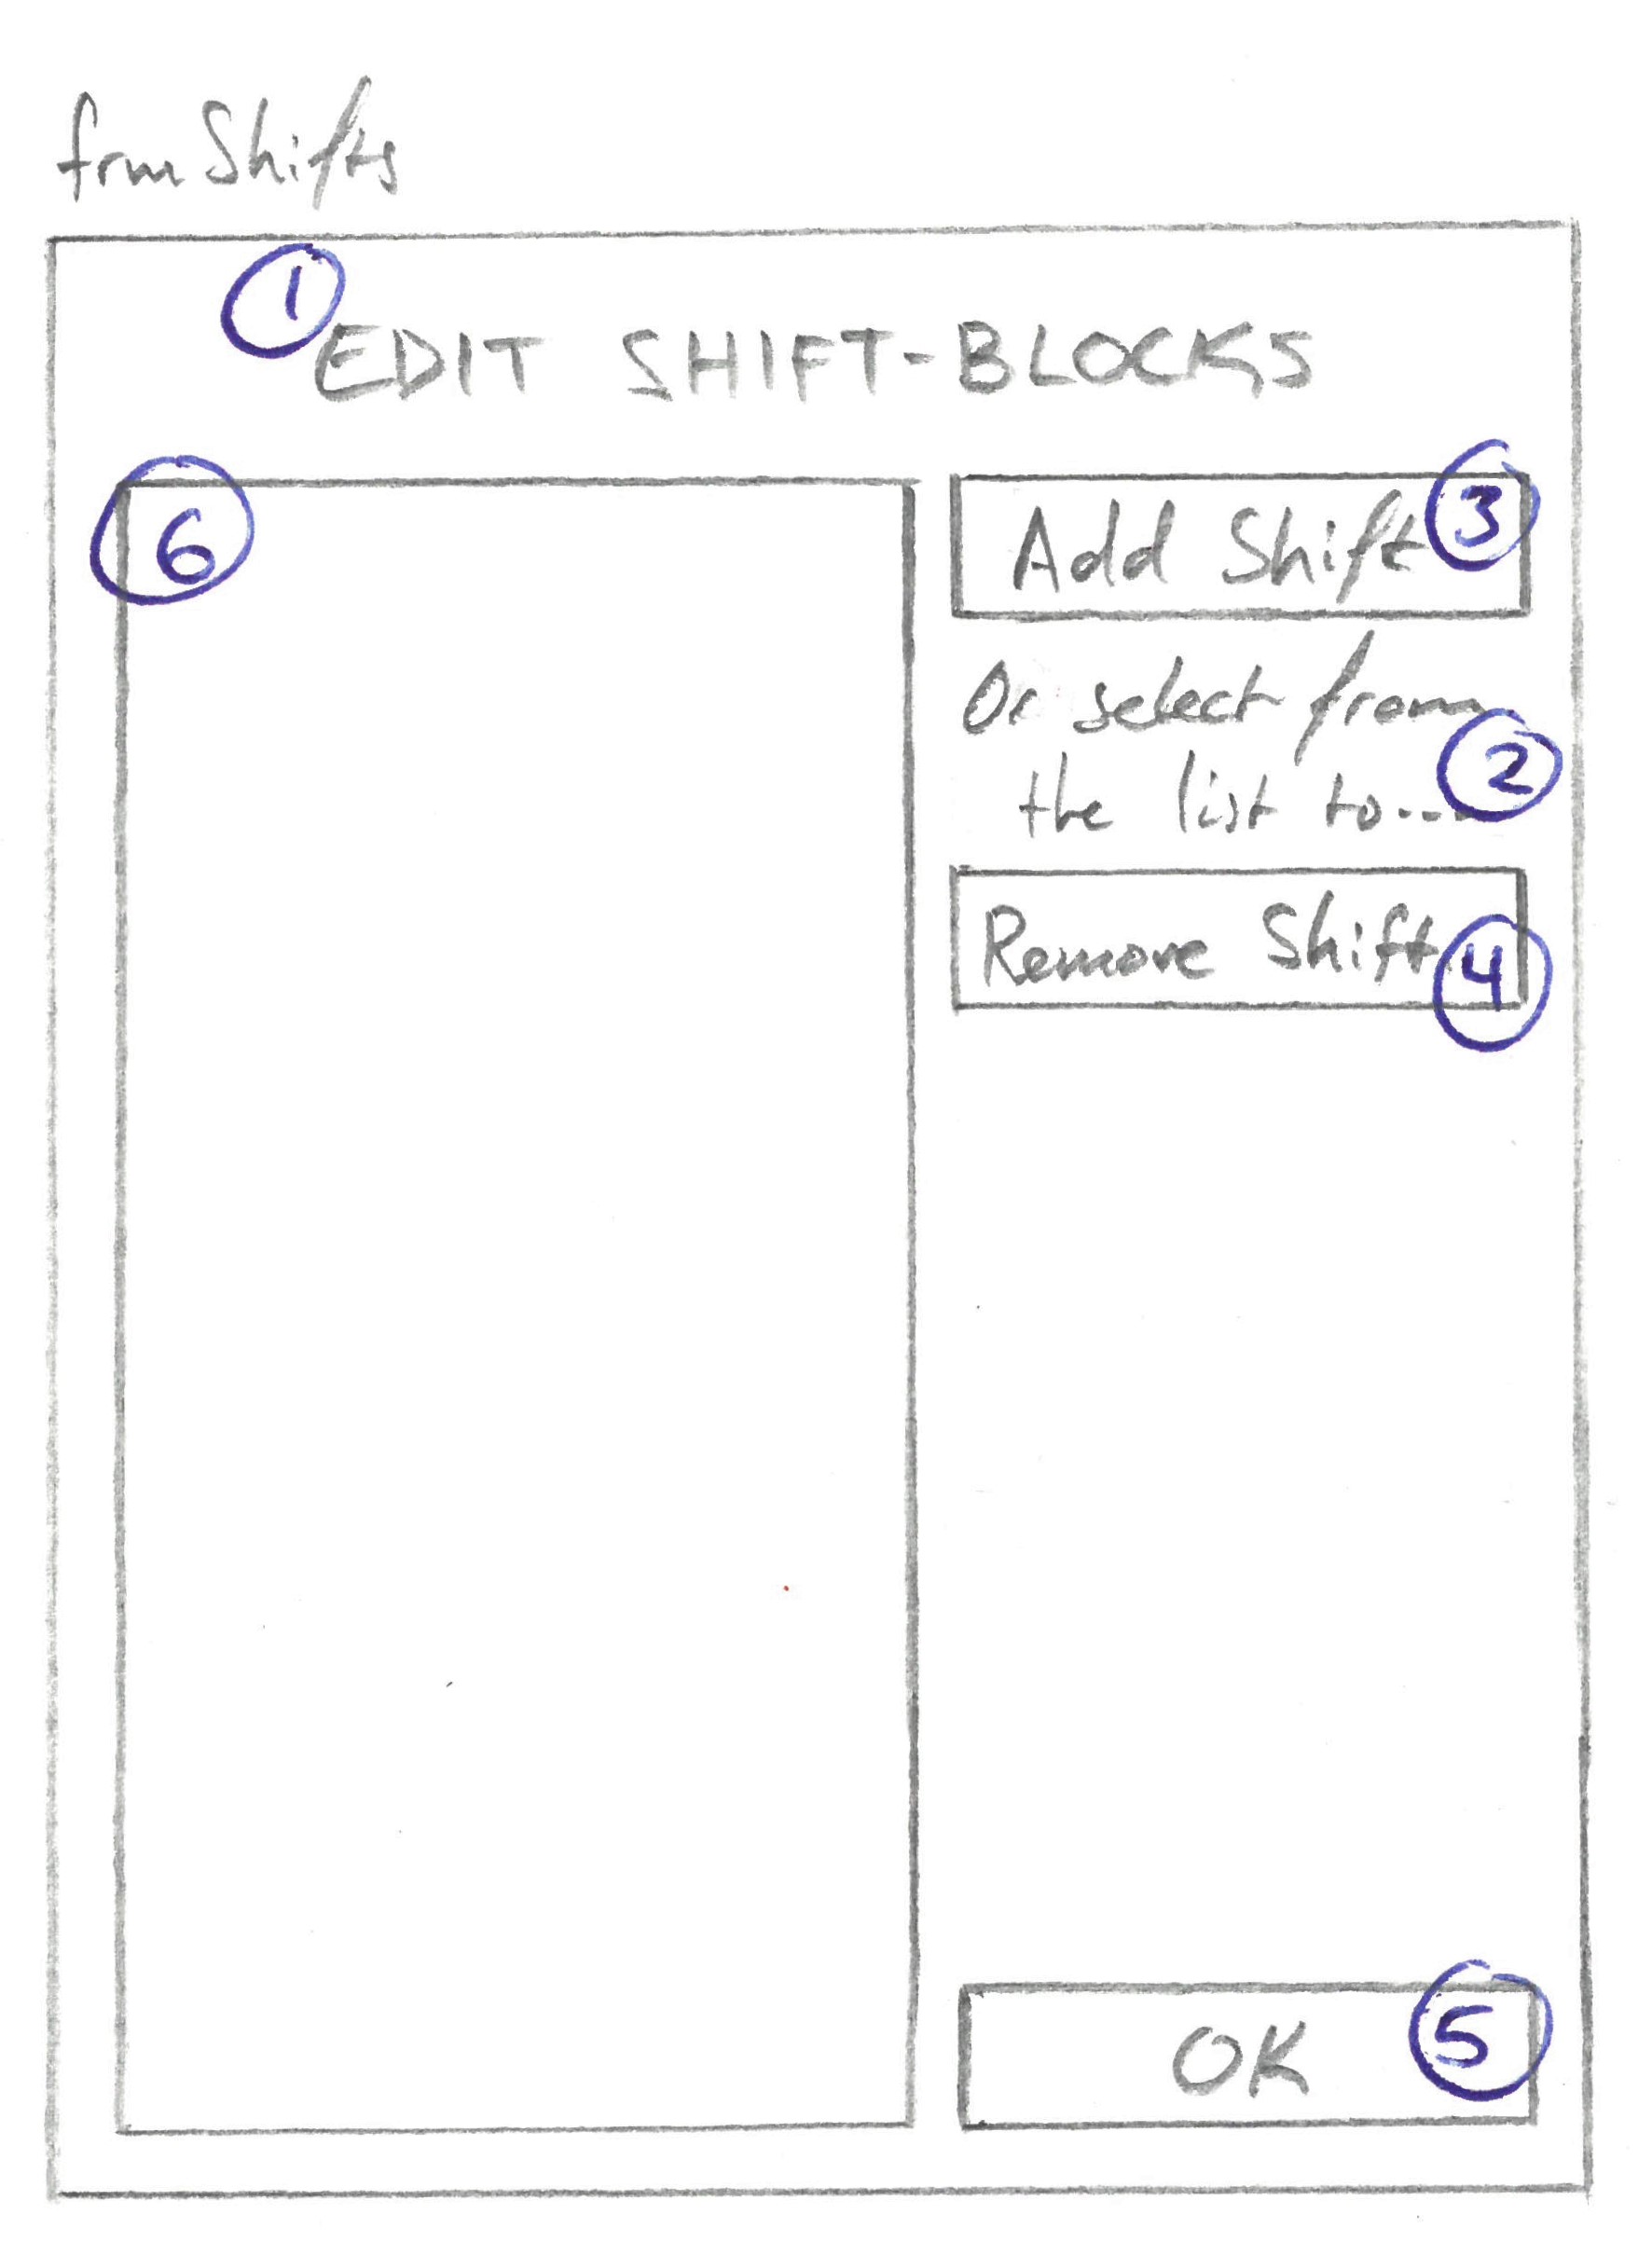 frmShifts
1
EDIT SHIFT-BLOCKS
6
Add Shift 3
Or select from
the list to... 2
Remove Shift 4
OK 5